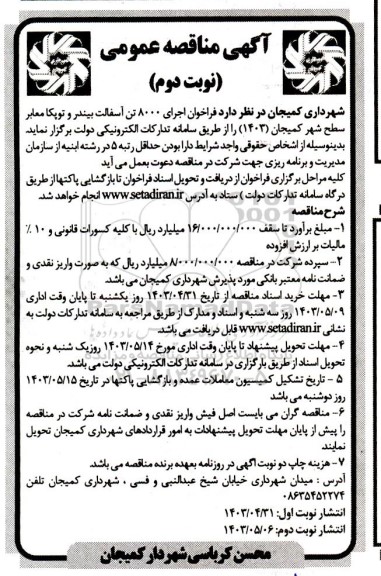 آگهی مناقصه عمومی
(نوبت دوم)
شهرداری کمیجان در نظر دارد فراخوان اجرای ۸۰۰۰ تن آسفالت بیندر و توپکا معابر
سطح شهر کمیجان (۱۴۰۳) را از طریق سامانه تدارکات الکترونیکی دولت برگزار نماید.
بدینوسیله از اشخاص حقوقی واجد شرایط دارا بودن حداقل رتبه ۵ در رشته ابنیه از سازمان
مدیریت و برنامه ریزی جهت شرکت در مناقصه دعوت بعمل می آید
کلیه مراحل برگزاری فراخوان از دریافت و تحویل اسناد فراخوان تا بازگشایی پاکتها از طریق
درگاه سامانه تدارکات دولت ) ستاد به آدرس www.setadiran.ir انجام خواهد شد.
شرح مناقصه
۱- مبلغ برآورد تا سقف ۱۶/۰۰۰/۰۰۰/۰۰۰ میلیارد ریال با کلیه کسورات قانونی و ۱۰ ٪
مالیات بر ارزش افزوده
۲- سپرده شرکت در مناقصه ۸/۰۰۰/۰۰۰/۰۰۰ میلیارد ریال که به صورت واریز نقدی و
ضمانت نامه معتبر بانکی مورد پذیرش شهرداری کمیجان می باشد.
۳- مهلت خرید اسناد مناقصه از تاریخ ۱۴۰۳/۰۴/۳۱ روز یکشنبه تا پایان وقت اداری
۱۴۰۳/۰۵/۰۹ روز سه شنبه و اسناد و مدارک از طریق مراجعه به سامانه تدارکات دولت به
نشانی www.setadiran.ir قابل دریافت می باشد.
۴- مهلت تحویل پیشنهاد تا پایان وقت اداری مورخ ۱۴۰۳/۰۵/۱۴ روز یک شنبه و نحوه
تحویل اسناد از طریق بارگزاری در سامانه تدارکات الکترونیکی دولت می باشد.
۵ - تاریخ تشکیل کمیسیون معاملات عمده و بازگشایی پاکتها در تاریخ ۱۴۰۳/۰۵/۱۵
روز دوشنبه می باشد
۶- مناقصه گران می بایست اصل فیش واریز نقدی و ضمانت نامه شرکت در مناقصه
را پیش از پایان مهلت تحویل پیشنهادات به امور قراردادهای شهرداری کمیجان تحویل
نمایند.
۷- هزینه چاپ دو نوبت اگهی در روزنامه بعهده برنده مناقصه می باشد.
آدرس : میدان شهرداری خیابان شیخ عبدالنبی و فسی ، شهرداری کمیجان تلفن
۰۸۶۳۵۴۵۲۲۷۴
انتشار نوبت اول: ۱۴۰۳/۰۴/۳۱
انتشار نوبت دوم: ۱۴۰۳/۰۵/۰۶
محسن کرباسی شهردار کمیجان